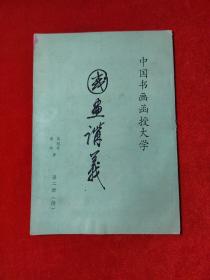 中国书画函授大学
国画讲义
第二册（附）